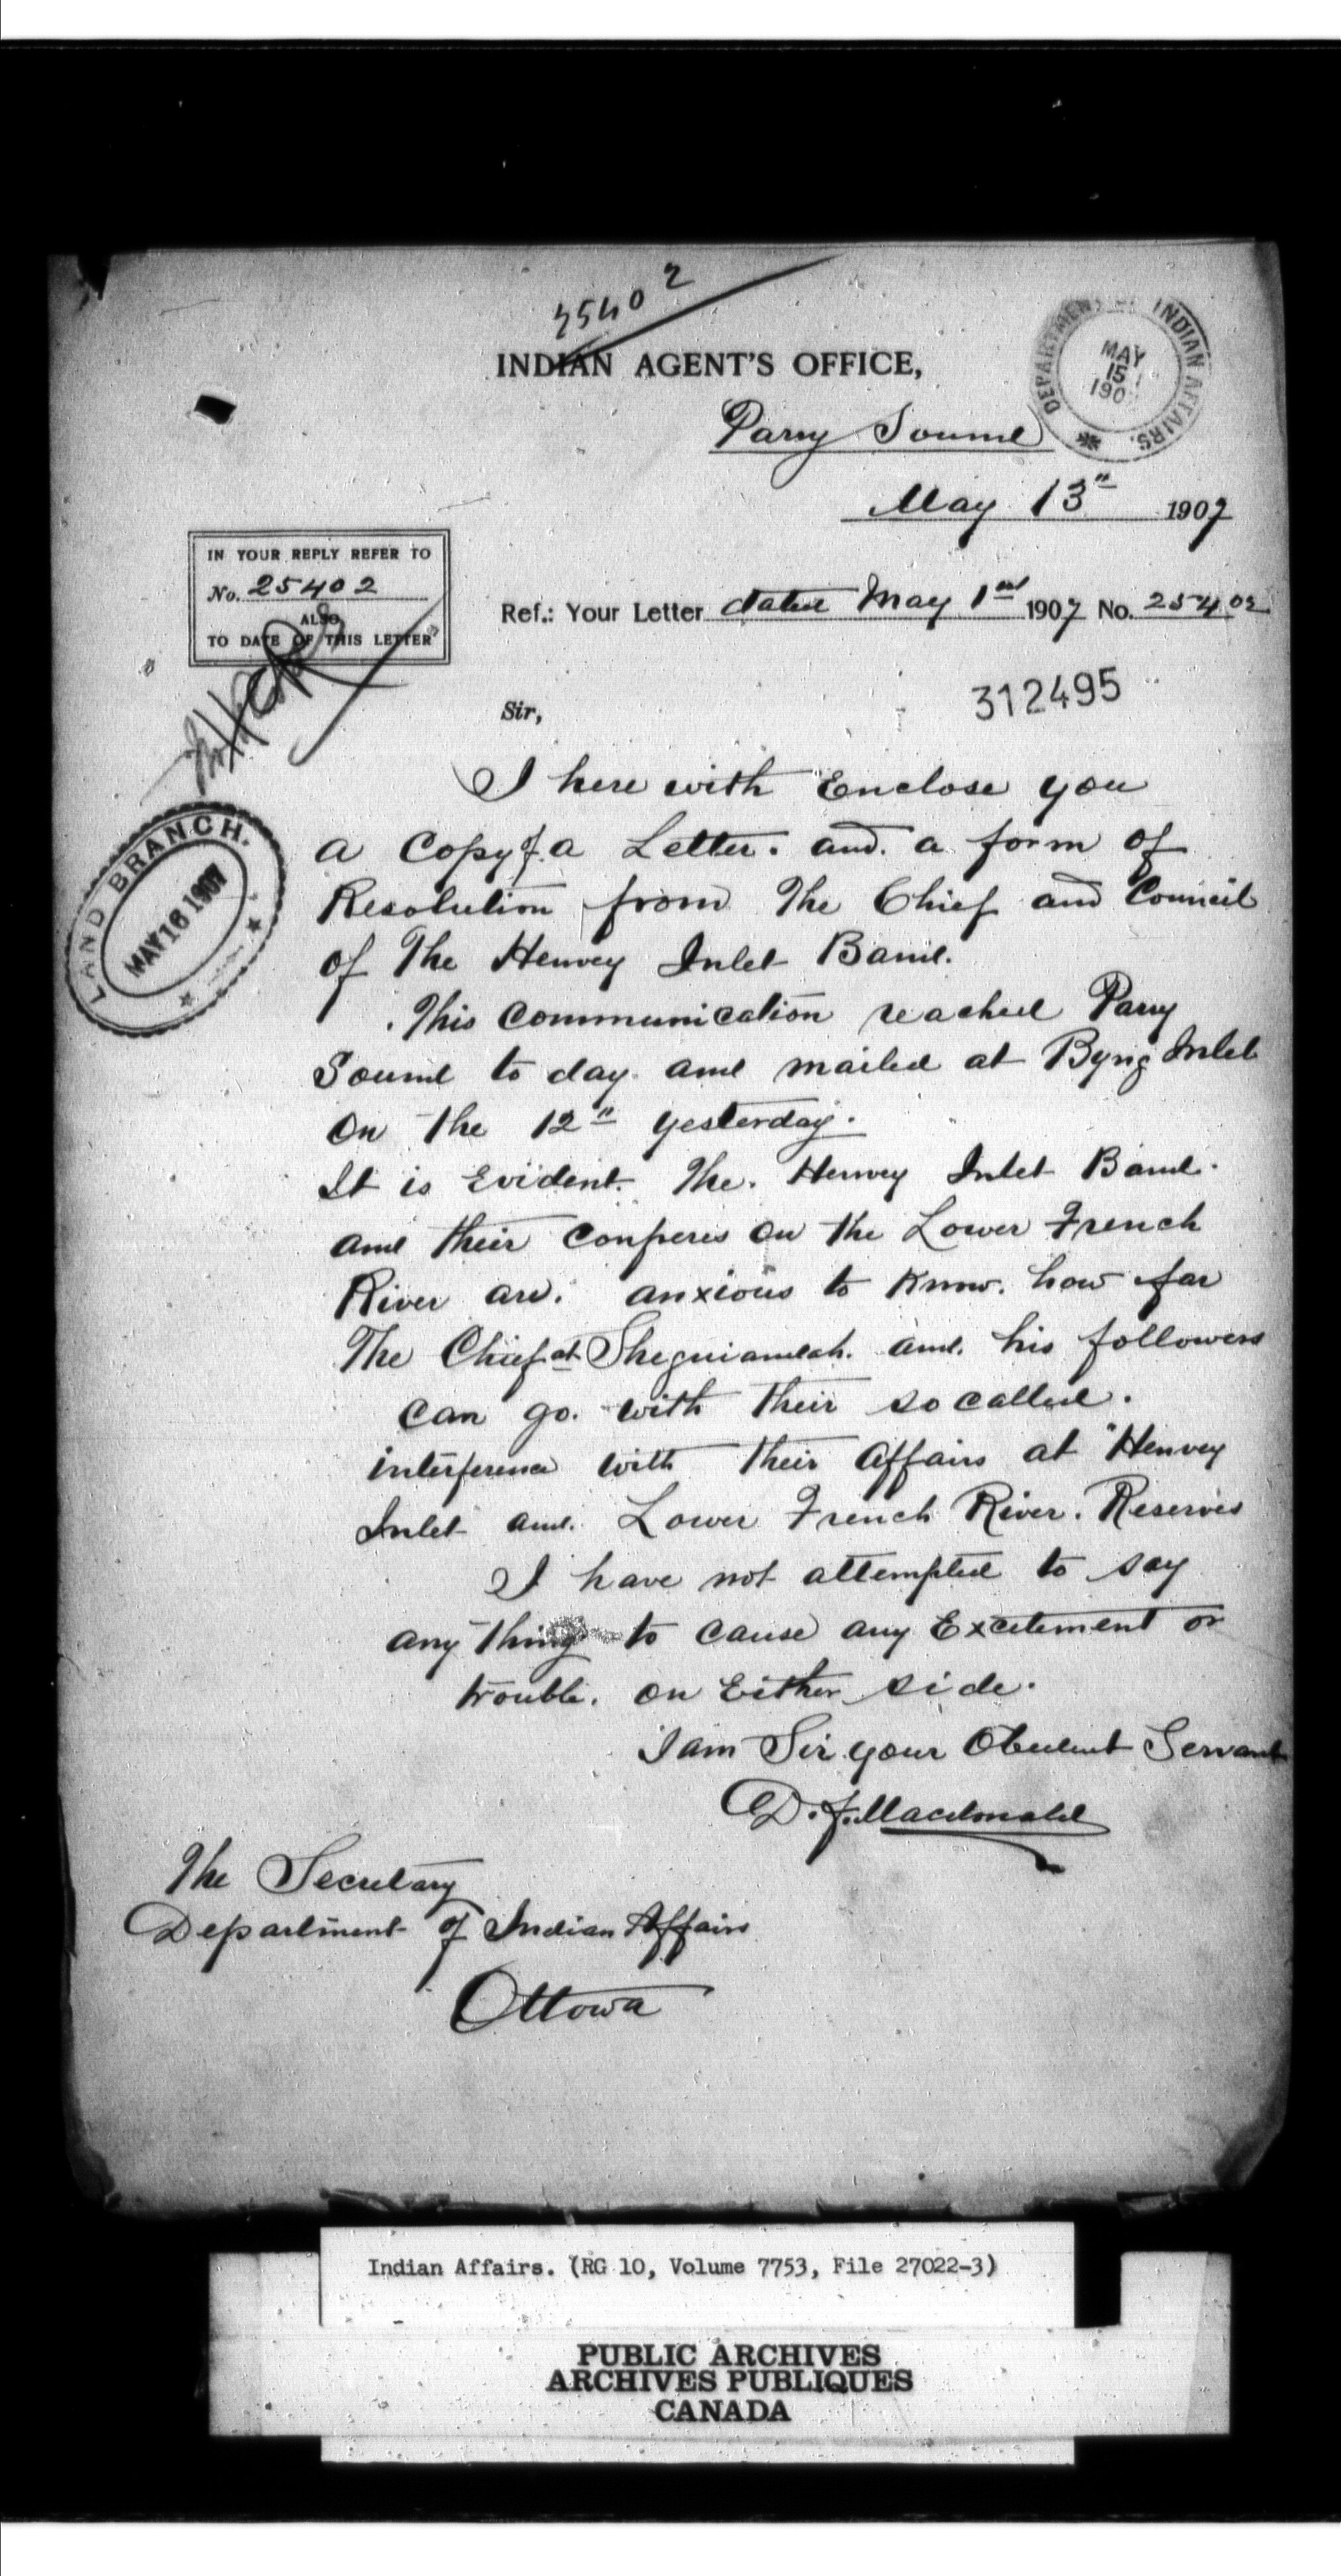 25402
INDIAN AGENT'S OFFICE,
DEPARTMENT OF INDIAN AFFAIRS.
MAY
15
190
Parry Sound
May 13" 1907
IN YOUR REPLY REFER TO
No. 25402
ALSO
TO DATE OF THIS LETTER
Ref.: Your Letter dated May 1st 1907 No. 25402
312495
Sir,
LAND BRANCH.
MAY 16 1907
I here with Enclose you
a Copy of a Letter. and. a form of
Resolution from The Chief and Council
of The Henvey Inlet Band.
This Communication reached Parry
Sound to day and mailed at Byng Inlet
on the 12" yesterday.
It is Evident. The. Henvey Inlet Band.
and their confreres on the Lower French
River are. anxious to know. how far
The Chief at Sheguiandah. and. his followers
can go. with their so called.
interference with their affairs at Henvey
Inlet and. Lower French River. Reserves
I have not attempted to say
any thing to cause any Excitement or
trouble. on Either side.
I am Sir your Obedient Servant
D. F. Macdonald
The Secretary
Department of Indian Affairs
Ottowa
Indian Affairs. (RG 10, Volume 7753, File 27022-3)
PUBLIC ARCHIVES
ARCHIVES PUBLIQUES
CANADA